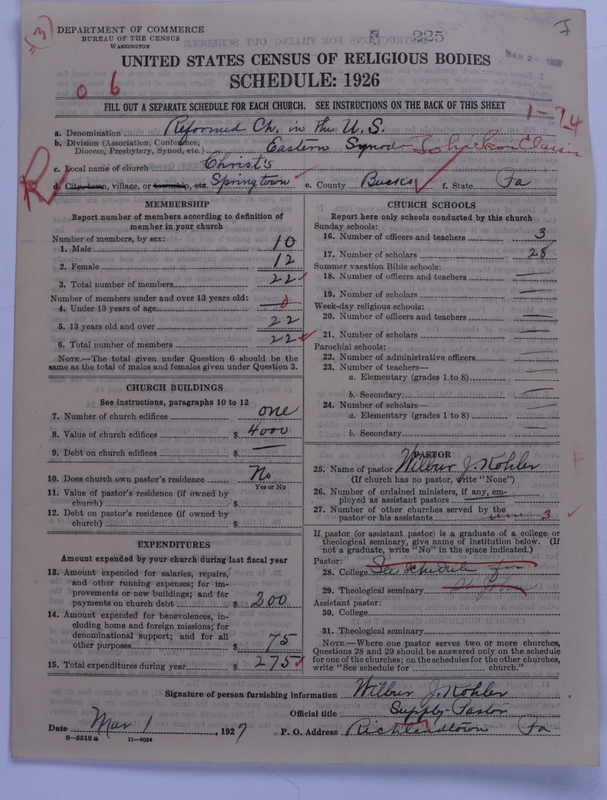 (3)
DEPARTMENT OF COMMERCE
BUREAU OF THE CENSUS
WASHINGTON
225
UNITED STATES CENSUS OF RELIGIOUS BODIES
SCHEDULE: 1926
0 6
FILL OUT A SEPARATE SCHEDULE FOR EACH CHURCH. SEE INSTRUCTIONS ON THE BACK OF THIS SHEET
1-74
a. Denomination Reformed Ch. in the U.S.
b. Division (Association, Conference, Diocese, Presbytery, Synod, etc.) Eastern Synod Tohickon Classis
c. Local name of church Christ's
R
d. City, town, village, or township, etc. Springtown e. County Bucks f. State Pa
MEMBERSHIP
Report number of members according to definition of
member in your church
Number of members, by sex:
1. Male 10
2. Female 12
3. Total number of members 22
Number of members under and over 13 years old:
4. Under 13 years of age 0
5. 13 years old and over 22
6. Total number of members 22
NOTE.—The total given under Question 6 should be
same as the total of males and females given under Question 3.
CHURCH BUILDINGS
See instructions, paragraphs 10 to 12
7. Number of church edifices one
8. Value of church edifices $ 4000
9. Debt on church edifices $ —
10. Does church own pastor's residence No
Yes or No
11. Value of pastor's residence (if owned by
church) $
12. Debt on pastor's residence (if owned by
church) $
EXPENDITURES
Amount expended by your church during last fiscal year
13. Amount expended for salaries, repairs,
and other running expenses; for im-
provements or new buildings; and for
payments on church debt $ 200
14. Amount expended for benevolences, in-
cluding home and foreign missions; for
denominational support; and for all
other purposes $ 75
15. Total expenditures during year $ 275
CHURCH SCHOOLS
Report here only schools conducted by this church
Sunday schools:
16. Number of officers and teachers 3
17. Number of scholars 28
Summer vacation Bible schools:
18. Number of officers and teachers —
19. Number of scholars —
Week-day religious schools:
20. Number of officers and teachers —
21. Number of scholars —
Parochial schools:
22. Number of administrative officers —
23. Number of teachers—
a. Elementary (grades 1 to 8) —
b. Secondary —
24. Number of scholars—
a. Elementary (grades 1 to 8) —
b. Secondary —
PASTOR
25. Name of pastor Wilbur J. Kohler
(If church has no pastor, write "None")
26. Number of ordained ministers, if any, em-
ployed as assistant pastors
27. Number of other churches served by the
pastor or his assistants 3
If pastor (or assistant pastor) is a graduate of a college or
theological seminary, give name of institution below. (If
not a graduate, write "No" in the space indicated.)
Pastor:
28. College See schedule for
29. Theological seminary
Assistant pastor:
30. College
31. Theological seminary
NOTE.—Where one pastor serves two or more churches,
Questions 28 and 29 should be answered only on the schedule
for one of the churches; on the schedules for the other churches,
write "See schedule for church."
Signature of person furnishing information Wilbur J. Kohler
Official title Supply-Pastor
Date Mar 1, 1927 P. O. Address Richlandtown Pa
8—5518a 11—9034